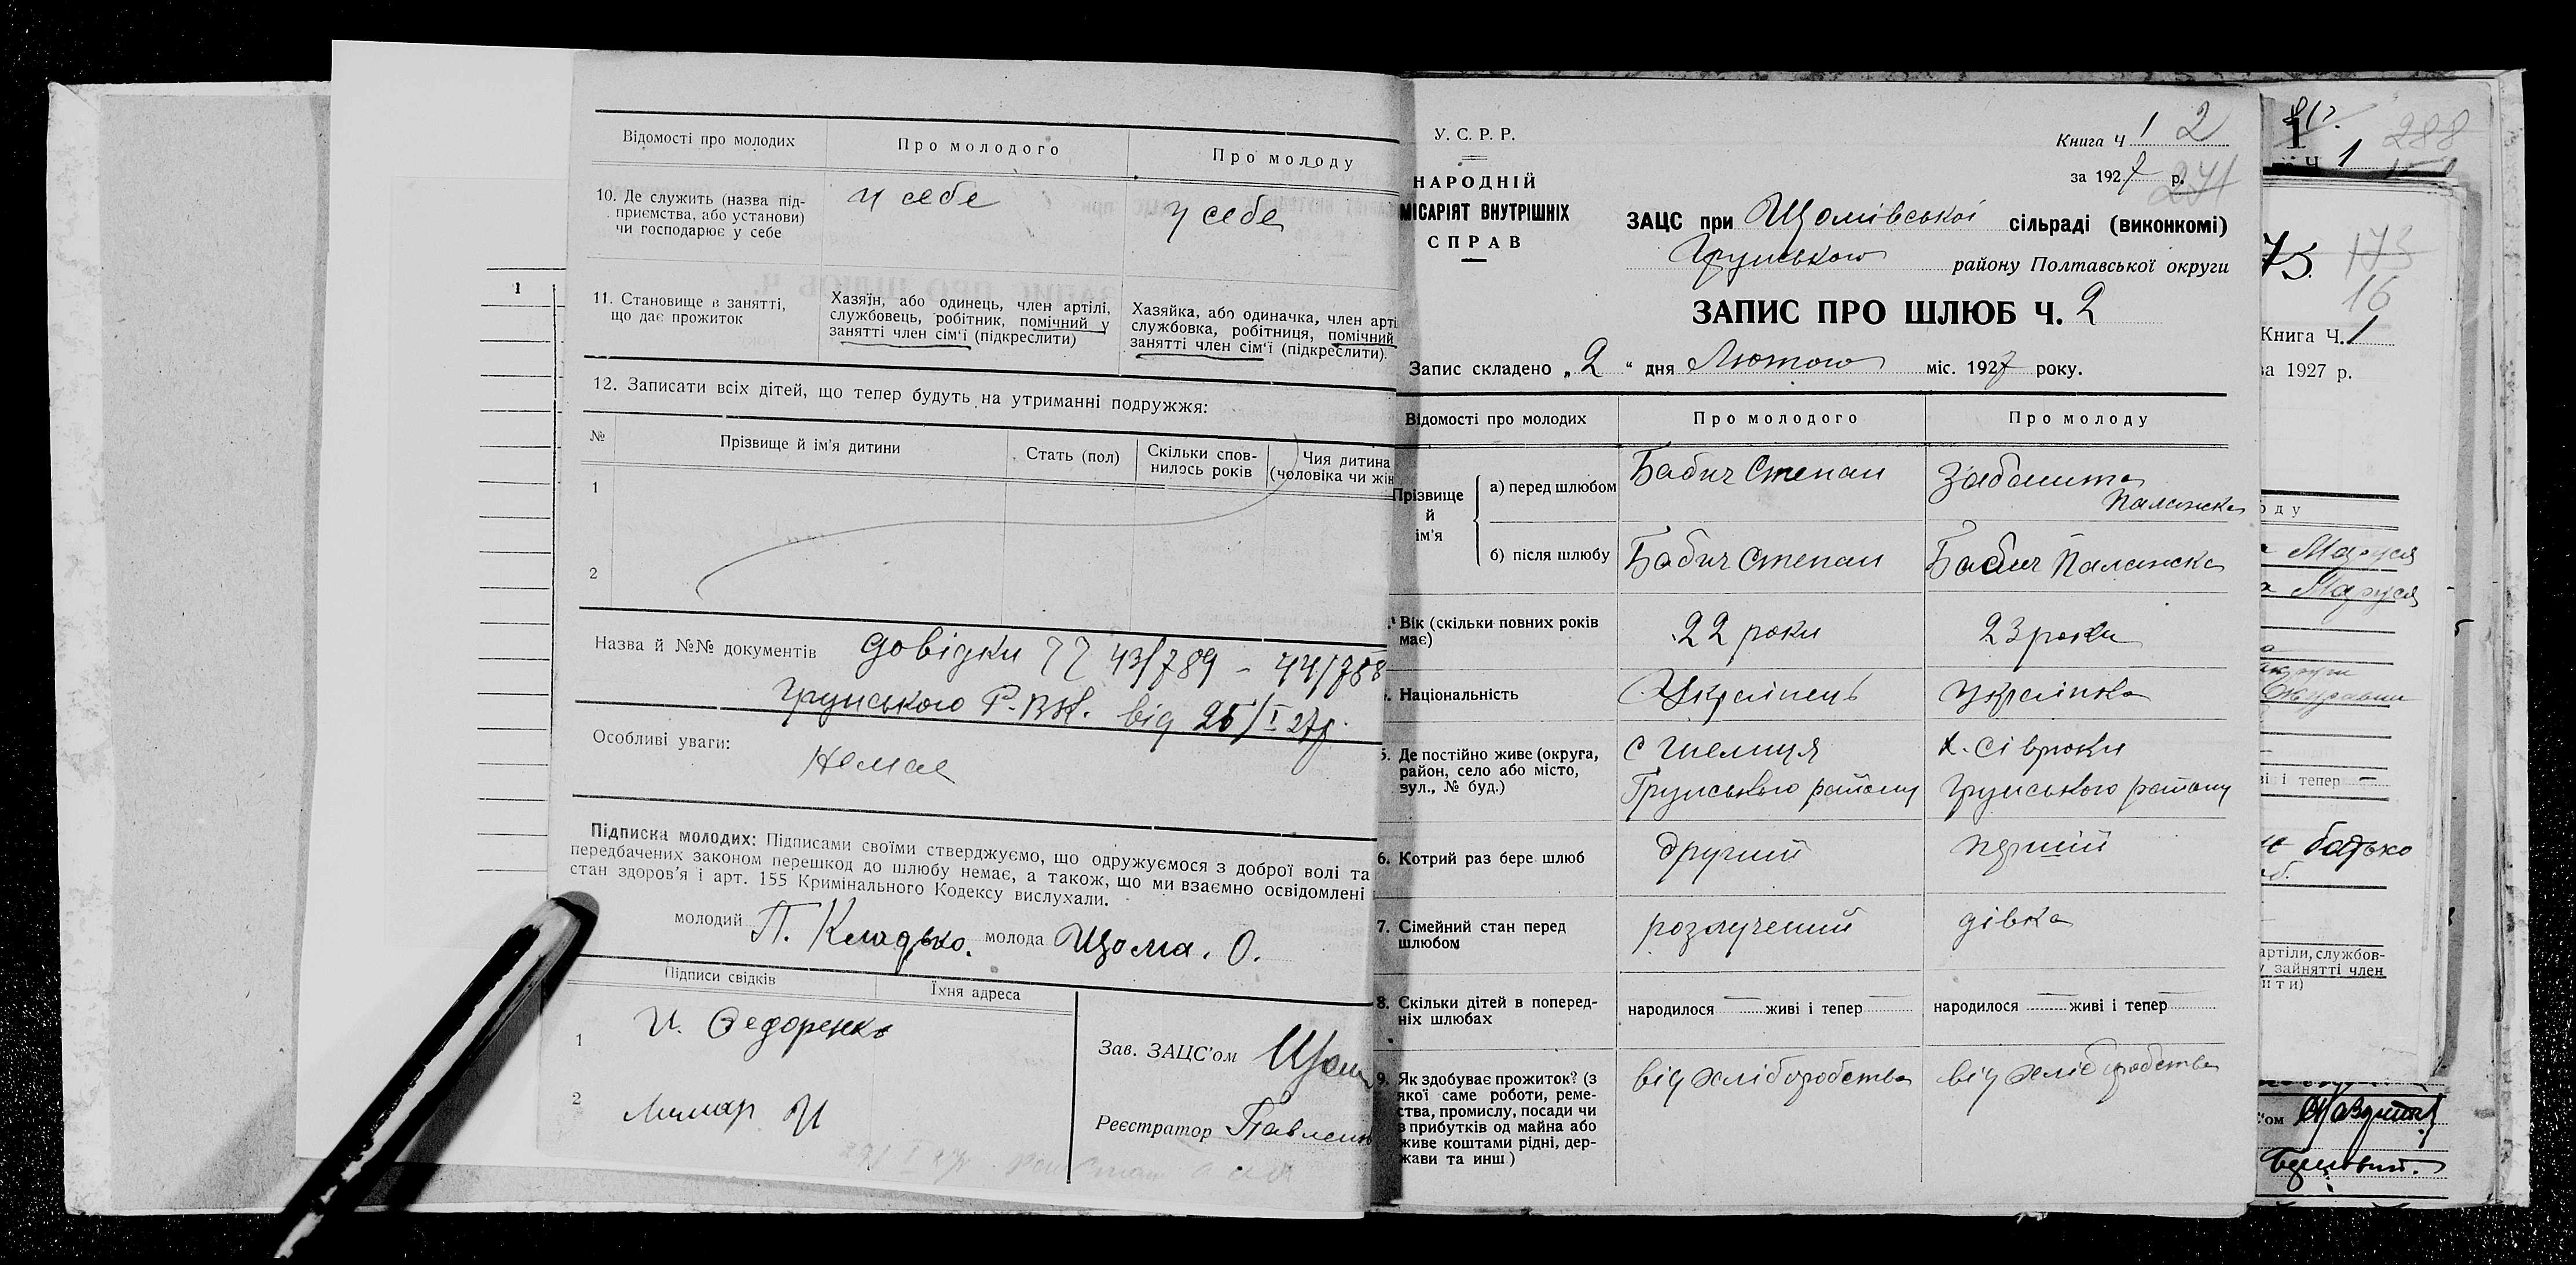 Відомості про молодих
Про молодого
Про молоду
10. Де служить (назва під-
приємства, або установи)
чи господарює у себе
у себе
у себе
11. Становище в занятті,
що дає прожиток
Хазяїн, або одинець, член артілі,
службовець, робітник, помічний у
занятті член сім'ї (підкреслити)
Хазяйка, або одиначка, член арті
службовка, робітниця, помічний
занятті член сім'ї (підкреслити).
12. Записати всіх дітей, що тепер будуть на утриманні подружжя:
№
Прізвище й ім'я дитини
Стать (пол)
Скільки спов-
нилось років
Чия дитина
(чоловіка чи жін
1
2
Назва й №№ документів довідки 43/789 - 44/788
Грунського Р.В.К. від 25/I 27р.
Особливі уваги:
Немае
Підписка молодих: Підписами своїми стверджуємо, що одружуємося з доброї волі та
передбачених законом перешкод до шлюбу немає, а також, що ми взаємно освідомлені
стан здоров'я і арт. 155 Кримінального Кодексу вислухали.
молодий П. Кладько. молода Щома. О.
Підписи свідків
Їхня адреса
1 И. Федоренко
2 Лимар И
Зав. ЗАЦС'ом
Реєстратор Павленко
1
У. С. Р. Р.
НАРОДНІЙ
МІСАРІЯТ ВНУТРІШНІХ
СПРАВ
Книга Ч 1 2
за 1927 р.
241
ЗАЦС при Щомівської сільраді (виконкомі)
Грунського району Полтавської округи
ЗАПИС ПРО ШЛЮБ Ч. 2
Запис складено „ 2 “ дня Лютого міс. 1927 року.
Відомості про молодих
Про молодого
Про молоду
Прізвище
й
ім'я
а) перед шлюбом
Бабич Степан
Забашта
Палажка
б) після шлюбу
Бабич Степан
Бабич Палажка
Вік (скільки повних років
має)
22 роки
23 роки
Національність
Українець
Українка
5. Де постійно живе (округа,
район, село або місто,
вул., № буд.)
с Шелиця
Грунського району
х. Сіврюки
Грунського району
6. Котрий раз бере шлюб
другий
перший
7. Сімейний стан перед
шлюбом
розлучений
дівка
8. Скільки дітей в поперед-
ніх шлюбах
народилося — живі і тепер —
народилося — живі і тепер —
9. Як здобуває прожиток? (з
якої саме роботи, реме-
ства, промислу, посади чи
з прибутків од майна або
живе коштами рідні, дер-
жави та инш.)
від хліборобства
від хліборобства
1
288
Ч 1
75
173
16
Книга Ч. 1
за 1927 р.
оду
Маруся
Маруся
ві і тепер —
батько
артіли, службов-
у зайнятті член
ити)
'ом